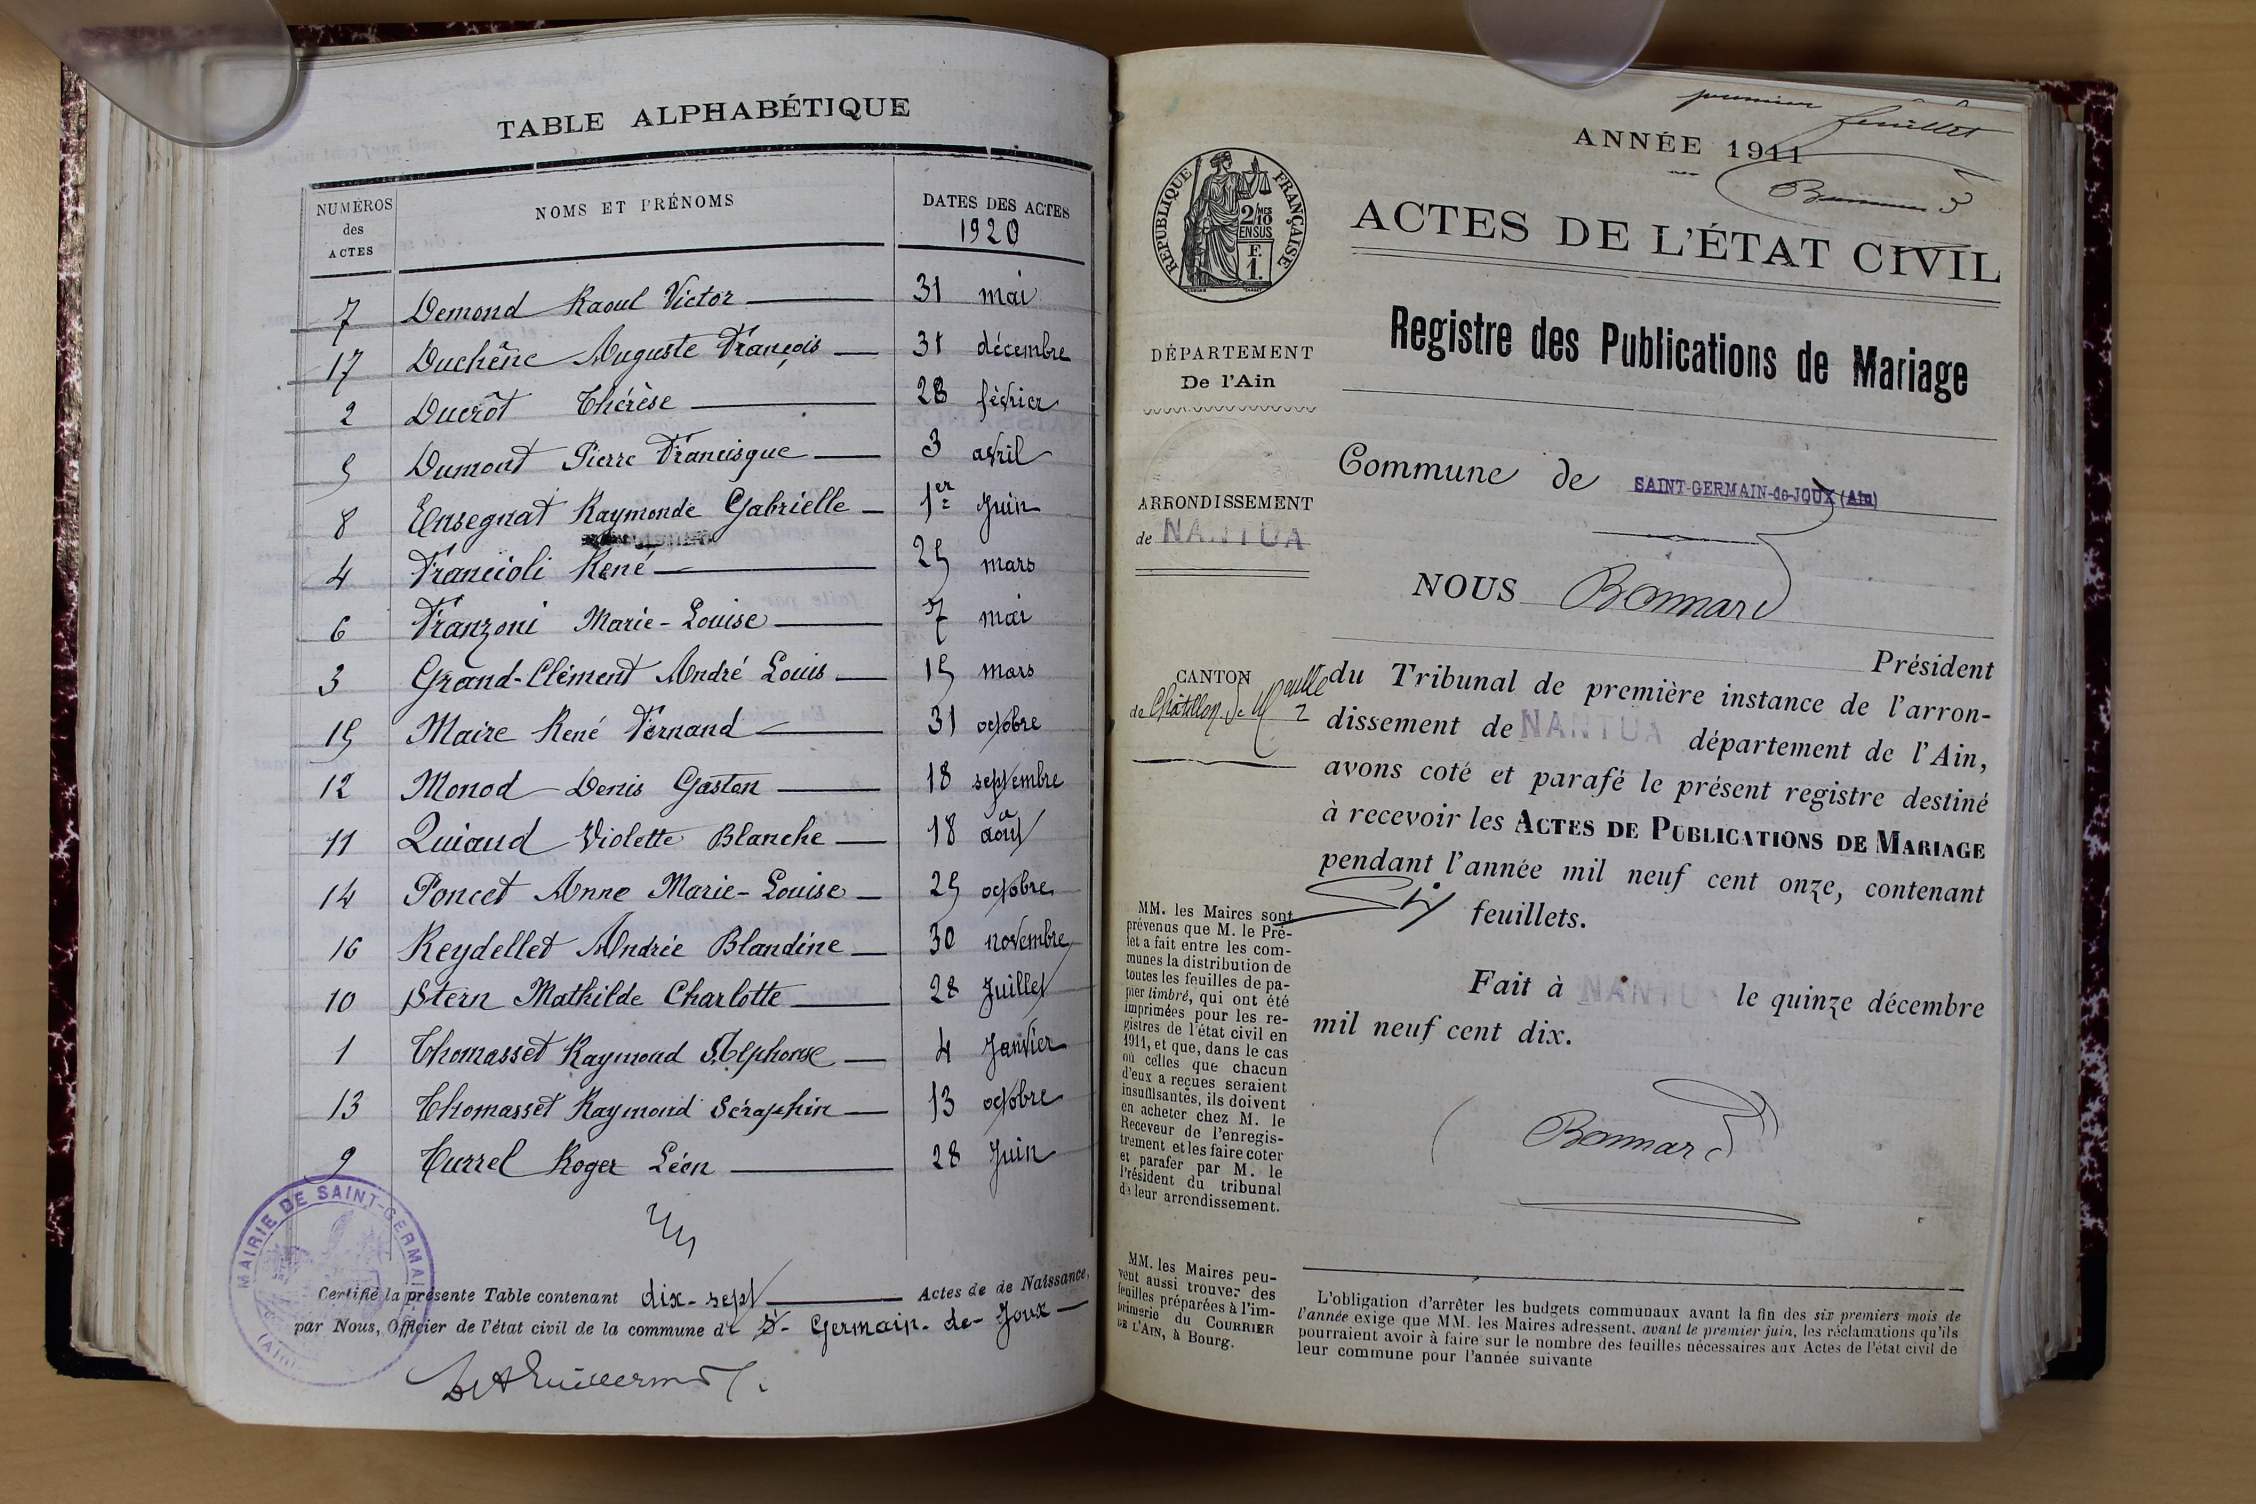 TABLE ALPHABÉTIQUE
NUMÉROS des ACTES
NOMS ET PRÉNOMS
DATES DES ACTES
1920
7 Demond Raoul Victor 31 mai
17 Duchêne Auguste François 31 décembre
2 Ducrôt Thérèse 28 février
5 Dumont Pierre Francisque 3 avril
8 Ensegnat Raymonde Gabrielle 1er Juin
4 Francioli René 25 mars
6 Franzoni Marie-Louise 7 mai
3 Grand-Clément André Louis 15 mars
15 Maire René Fernand 31 octobre
12 Monod Denis Gaston 18 septembre
11 Quiaud Violette Blanche 18 août
14 Poncet Anne Marie-Louise 25 octobre
16 Reydellet Andrée Blandine 30 novembre
10 Stern Mathilde Charlotte 28 Juillet
1 Thomasset Raymond Alphonse 4 Janvier
13 Thomasset Raymond Séraphin 13 octobre
9 Turrel Roger Léon 28 Juin
MAIRIE DE SAINT-GERMAI
(AIN)
Certifié la présente Table contenant dix-sept Actes de de Naissance,
par Nous, Officier de l'état civil de la commune de St-Germain-de-Joux
premier
feuillet
ANNÉE 1911
RÉPUBLIQUE FRANÇAISE
2/10 MES
EN SUS
F.
1.
ACTES DE L'ÉTAT CIVIL
Registre des Publications de Mariage
DÉPARTEMENT
De l'Ain
ARRONDISSEMENT
de NANTUA
CANTON
de Châtillon de Michaille
Commune de SAINT-GERMAIN-de-JOUX (Ain)
NOUS Bonnard
Président
du Tribunal de première instance de l'arron-
dissement de NANTUA département de l'Ain,
avons coté et parafé le présent registre destiné
à recevoir les ACTES DE PUBLICATIONS DE MARIAGE
pendant l'année mil neuf cent onze, contenant
Six feuillets.
Fait à NANTUA le quinze décembre
mil neuf cent dix.
Bonnard
MM. les Maires sont
prévenus que M. le Pré-
fet a fait entre les com-
munes la distribution de
toutes les feuilles de pa-
pier timbré, qui ont été
imprimées pour les re-
gistres de l'état civil en
1911, et que, dans le cas
où celles que chacun
d'eux a reçues seraient
insuffisantes, ils doivent
en acheter chez M. le
Receveur de l'enregis-
trement et les faire coter
et parafer par M. le
Président du tribunal
de leur arrondissement.
MM. les Maires peu-
vent aussi trouver des
feuilles préparées à l'im-
primerie du COURRIER
DE L'AIN, à Bourg.
L'obligation d'arrêter les budgets communaux avant la fin des six premiers mois de
l'année exige que MM. les Maires adressent, avant le premier juin, les réclamations qu'ils
pourraient avoir à faire sur le nombre des feuilles nécessaires aux Actes de l'état civil de
leur commune pour l'année suivante